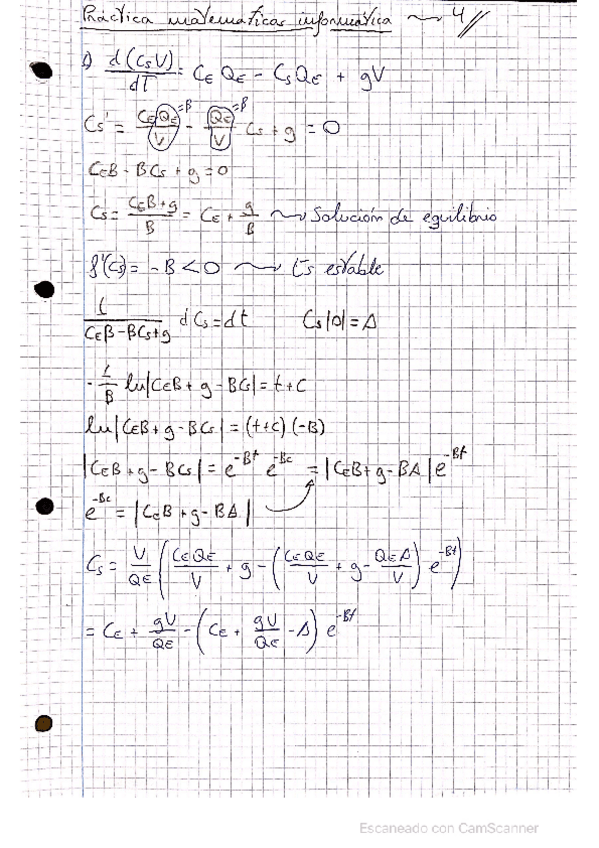 Práctica matemáticas informática ~ 4//
1) d(CsV)/dT = CE QE - CsQE + gV
Cs' = CEQE/V =B - QE/V =B Cs + g = 0
CEB - BCs + g = 0
Cs = CEB+g/B = CE + g/B ~> Solución de equilibrio
f'(Cs) = -B < 0 ~> Es estable
1/CEB-BCs+g dCs = dt Cs|0| = A
-1/B ln|CEB + g - BCs| = t + C
ln|CEB + g - BCs| = (t+c)(-B)
|CEB + g - BCs| = e^-Bt e^-Bc = |CEB + g - BA| e^-Bt
e^-Bc = |CEB + g - BA|
Cs = V/QE (CEQE/V + g - (CEQE/V + g - QEA/V) e^-Bt)
= CE + gV/QE - (CE + gV/QE - A) e^-Bt
Escaneado con CamScanner